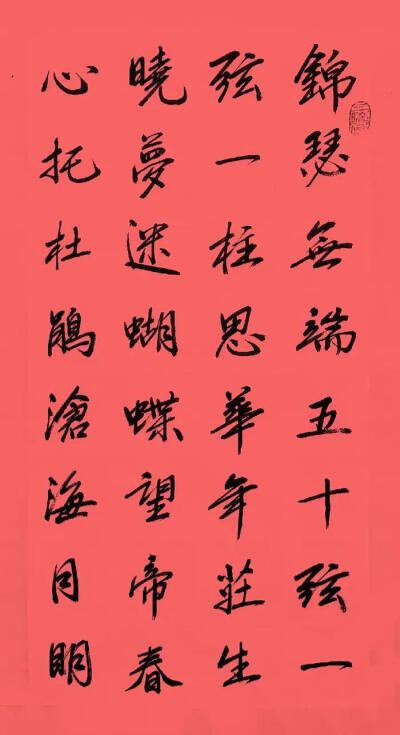 錦瑟無端五十弦一
弦一柱思華年莊生
曉夢迷蝴蝶望帝春
心托杜鵑滄海月明